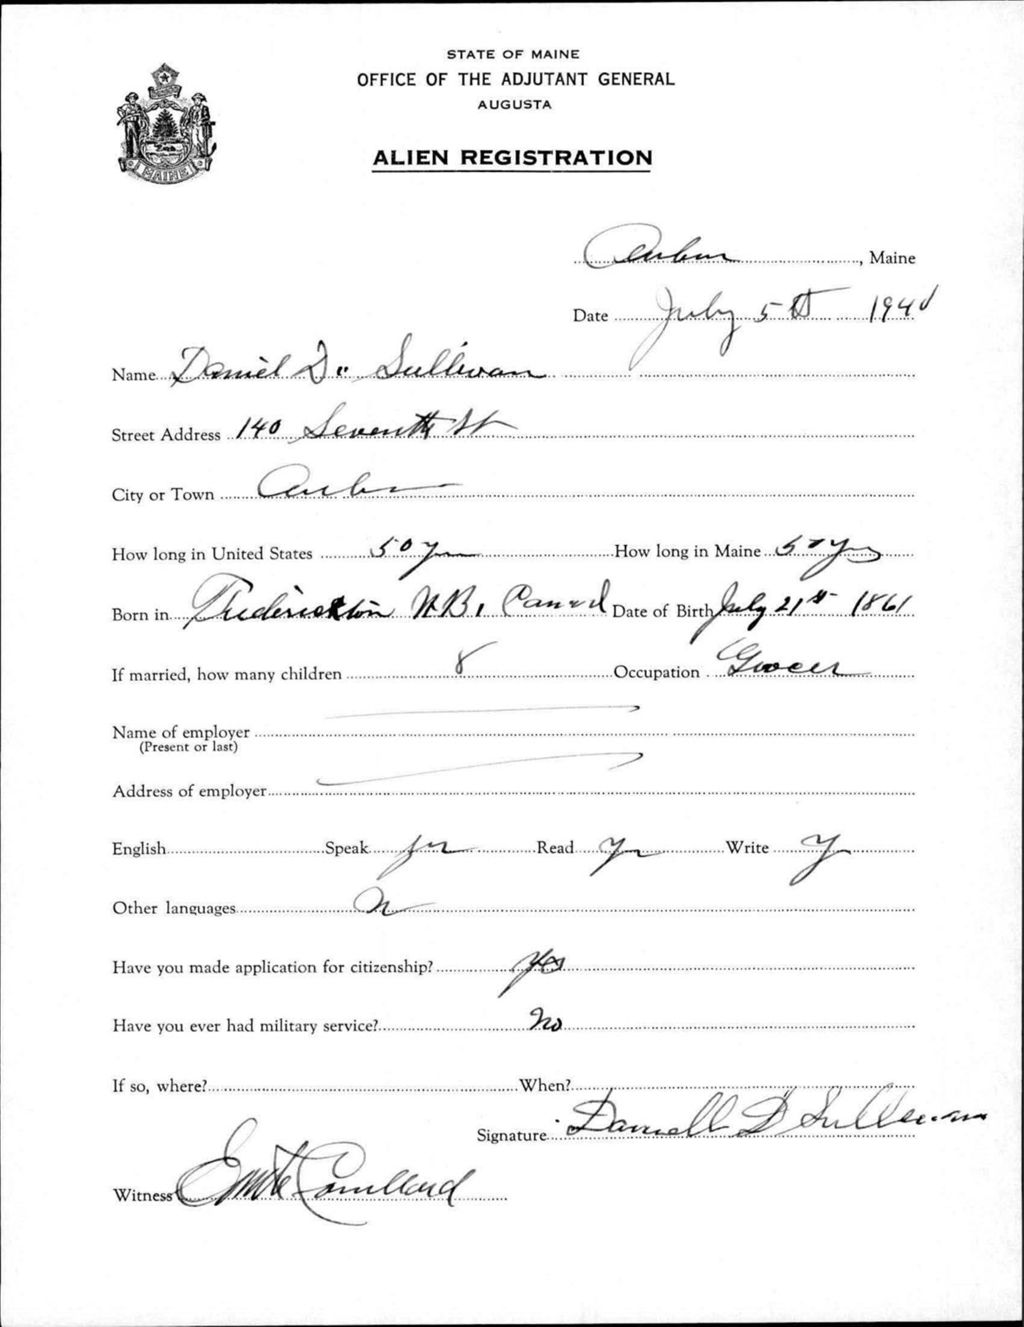 STATE OF MAINE
OFFICE OF THE ADJUTANT GENERAL
AUGUSTA
MAINE
ALIEN REGISTRATION
Auburn, Maine
Date July 5th 1940
Name Daniel D. Sullivan
Street Address 140 Seventh St
City or Town Auburn
How long in United States 50 yrs How long in Maine 50 yrs
Born in Fredericton N.B. Canad Date of Birth July 21st 1861
If married, how many children 8 Occupation Grocer
Name of employer
(Present or last)
Address of employer
English Speak yes Read Y Write Y
Other languages N
Have you made application for citizenship? yes
Have you ever had military service? No
If so, where? When?
Signature Daniell D Sullivan
Witness